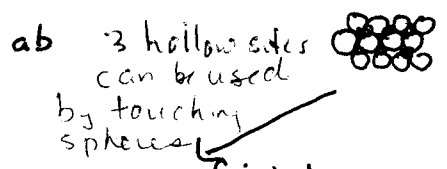 ab 3 hollow sites
can be used
by touching
spheres